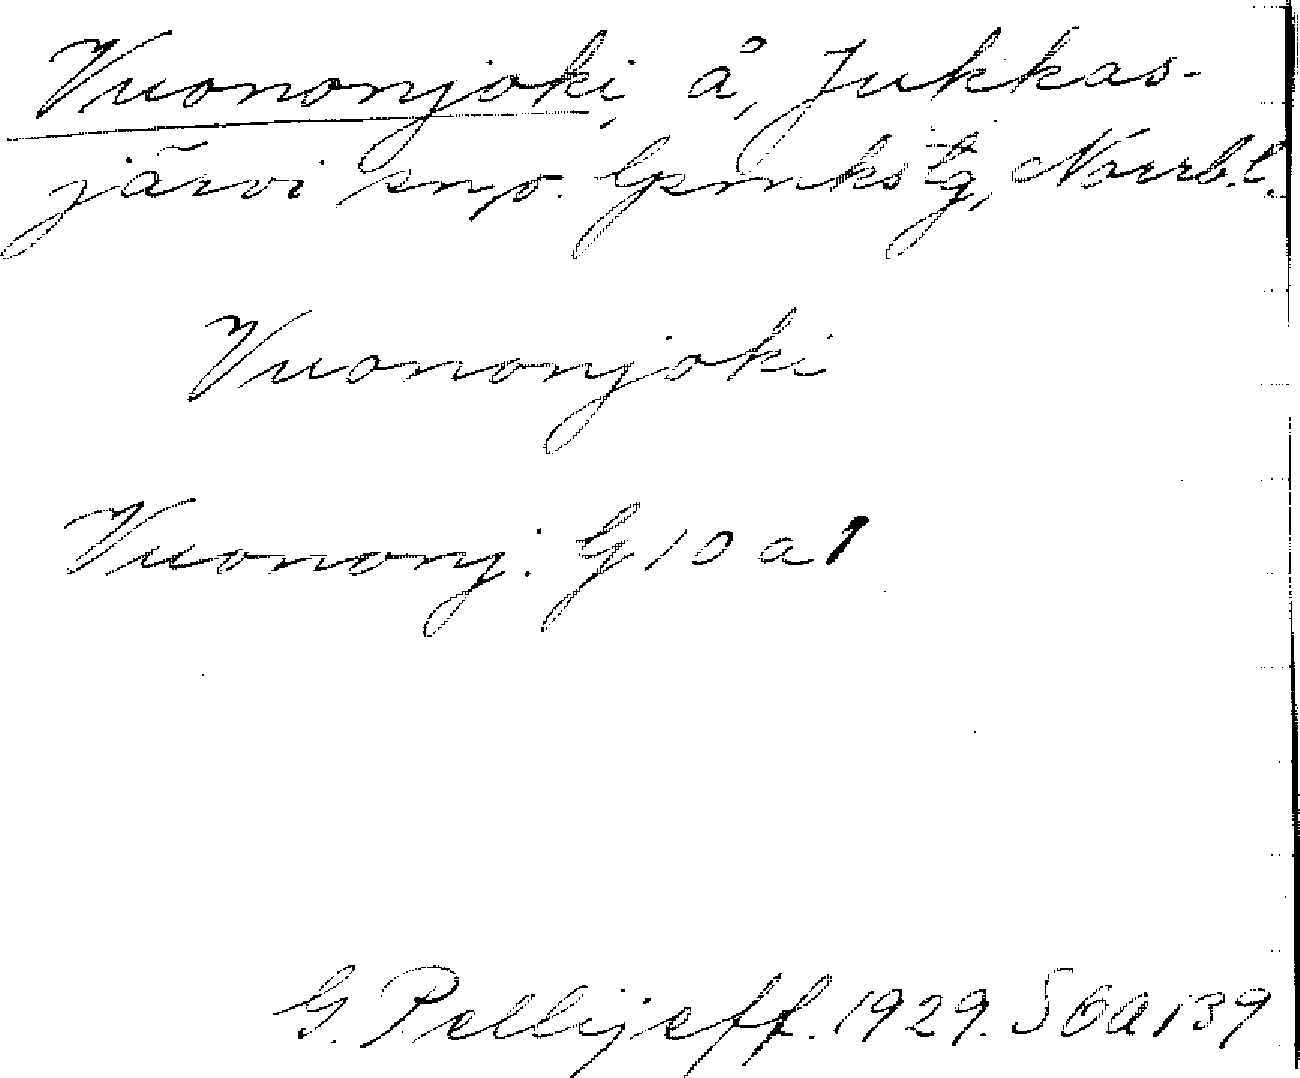 Vuononjoki, å, Jukkas-
järvi snp. Gpmkstg, Norrb.l.
Vuononjoki
Vuononj. G 10 a 1
G. Pellijeff. 1929. SOA 139